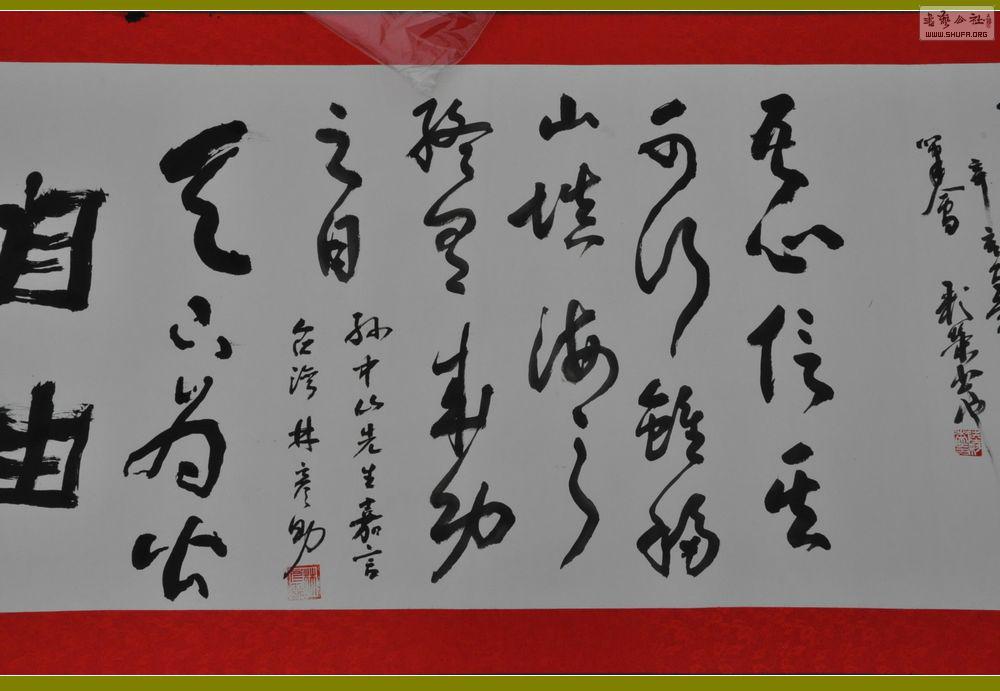 書藝公社
WWW.SHUFA.ORG
辛亥
吾心信其
可行雖移
山填海之
終有成功
之日
孫中山先生嘉言
台灣林彥助
天下為公
自由